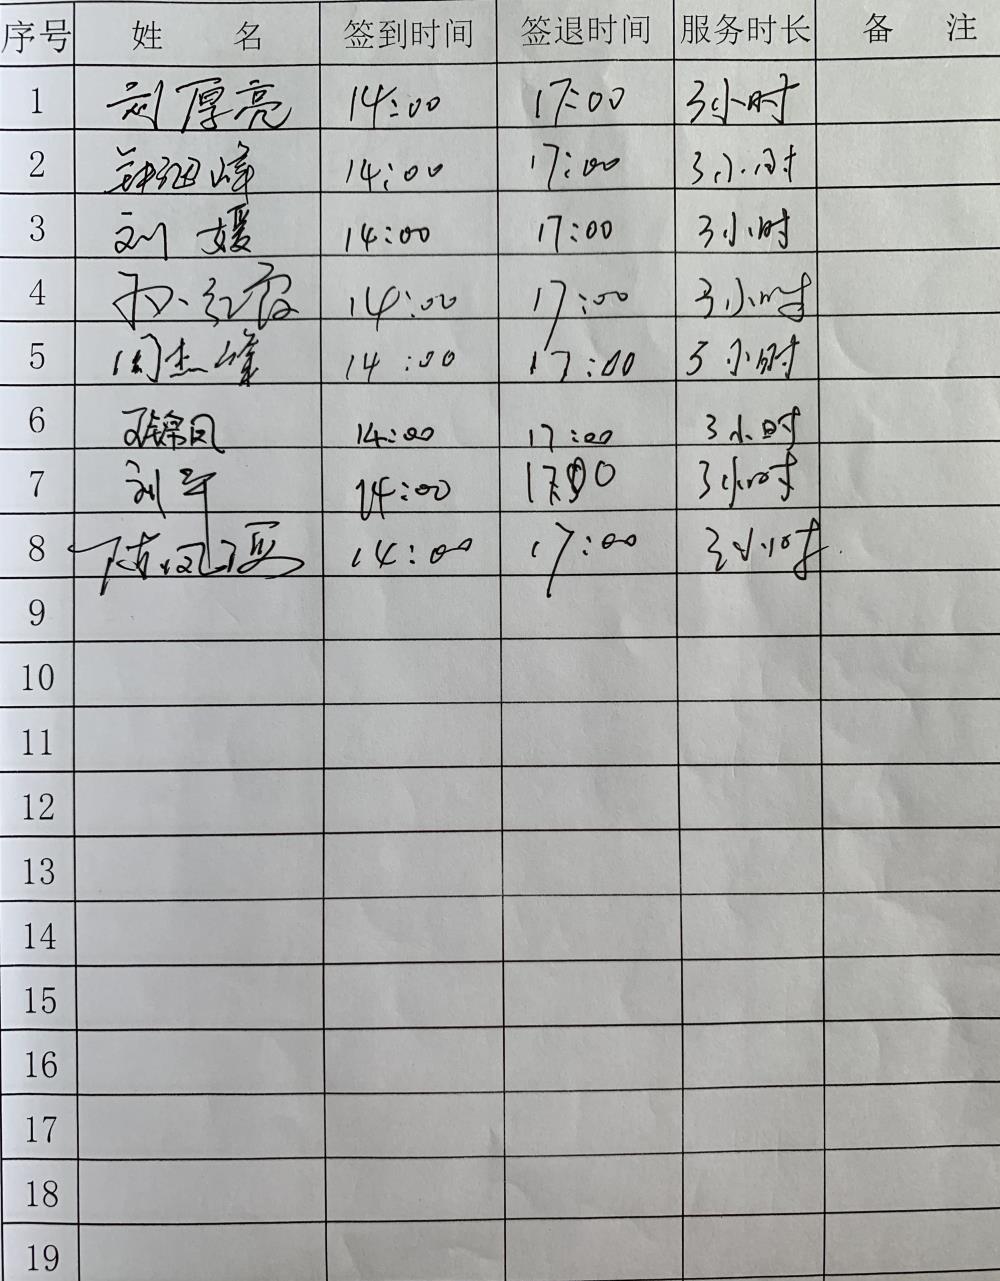 序号 姓 名 签到时间 签退时间 服务时长 备 注
1 刘厚亮 14:00 17:00 3小时
2 峰 14:00 17:00 3小时
3 刘 媛 14:00 17:00 3小时
4 红霞 14:00 17:00 3小时
5 周杰峰 14:00 17:00 3小时
6 锦凤 14:00 17:00 3小时
7 刘军 14:00 17:00 3小时
8 陈凤霞 14:00 17:00 3小时
9
10
11
12
13
14
15
16
17
18
19